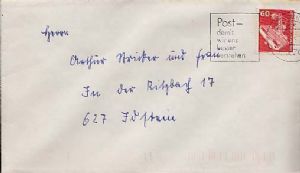 Herrn
Arthur Stricker und Frau
In der Ritzbach 17
627 Idstein
Post-
damit
wir uns
besser
verstehen
60